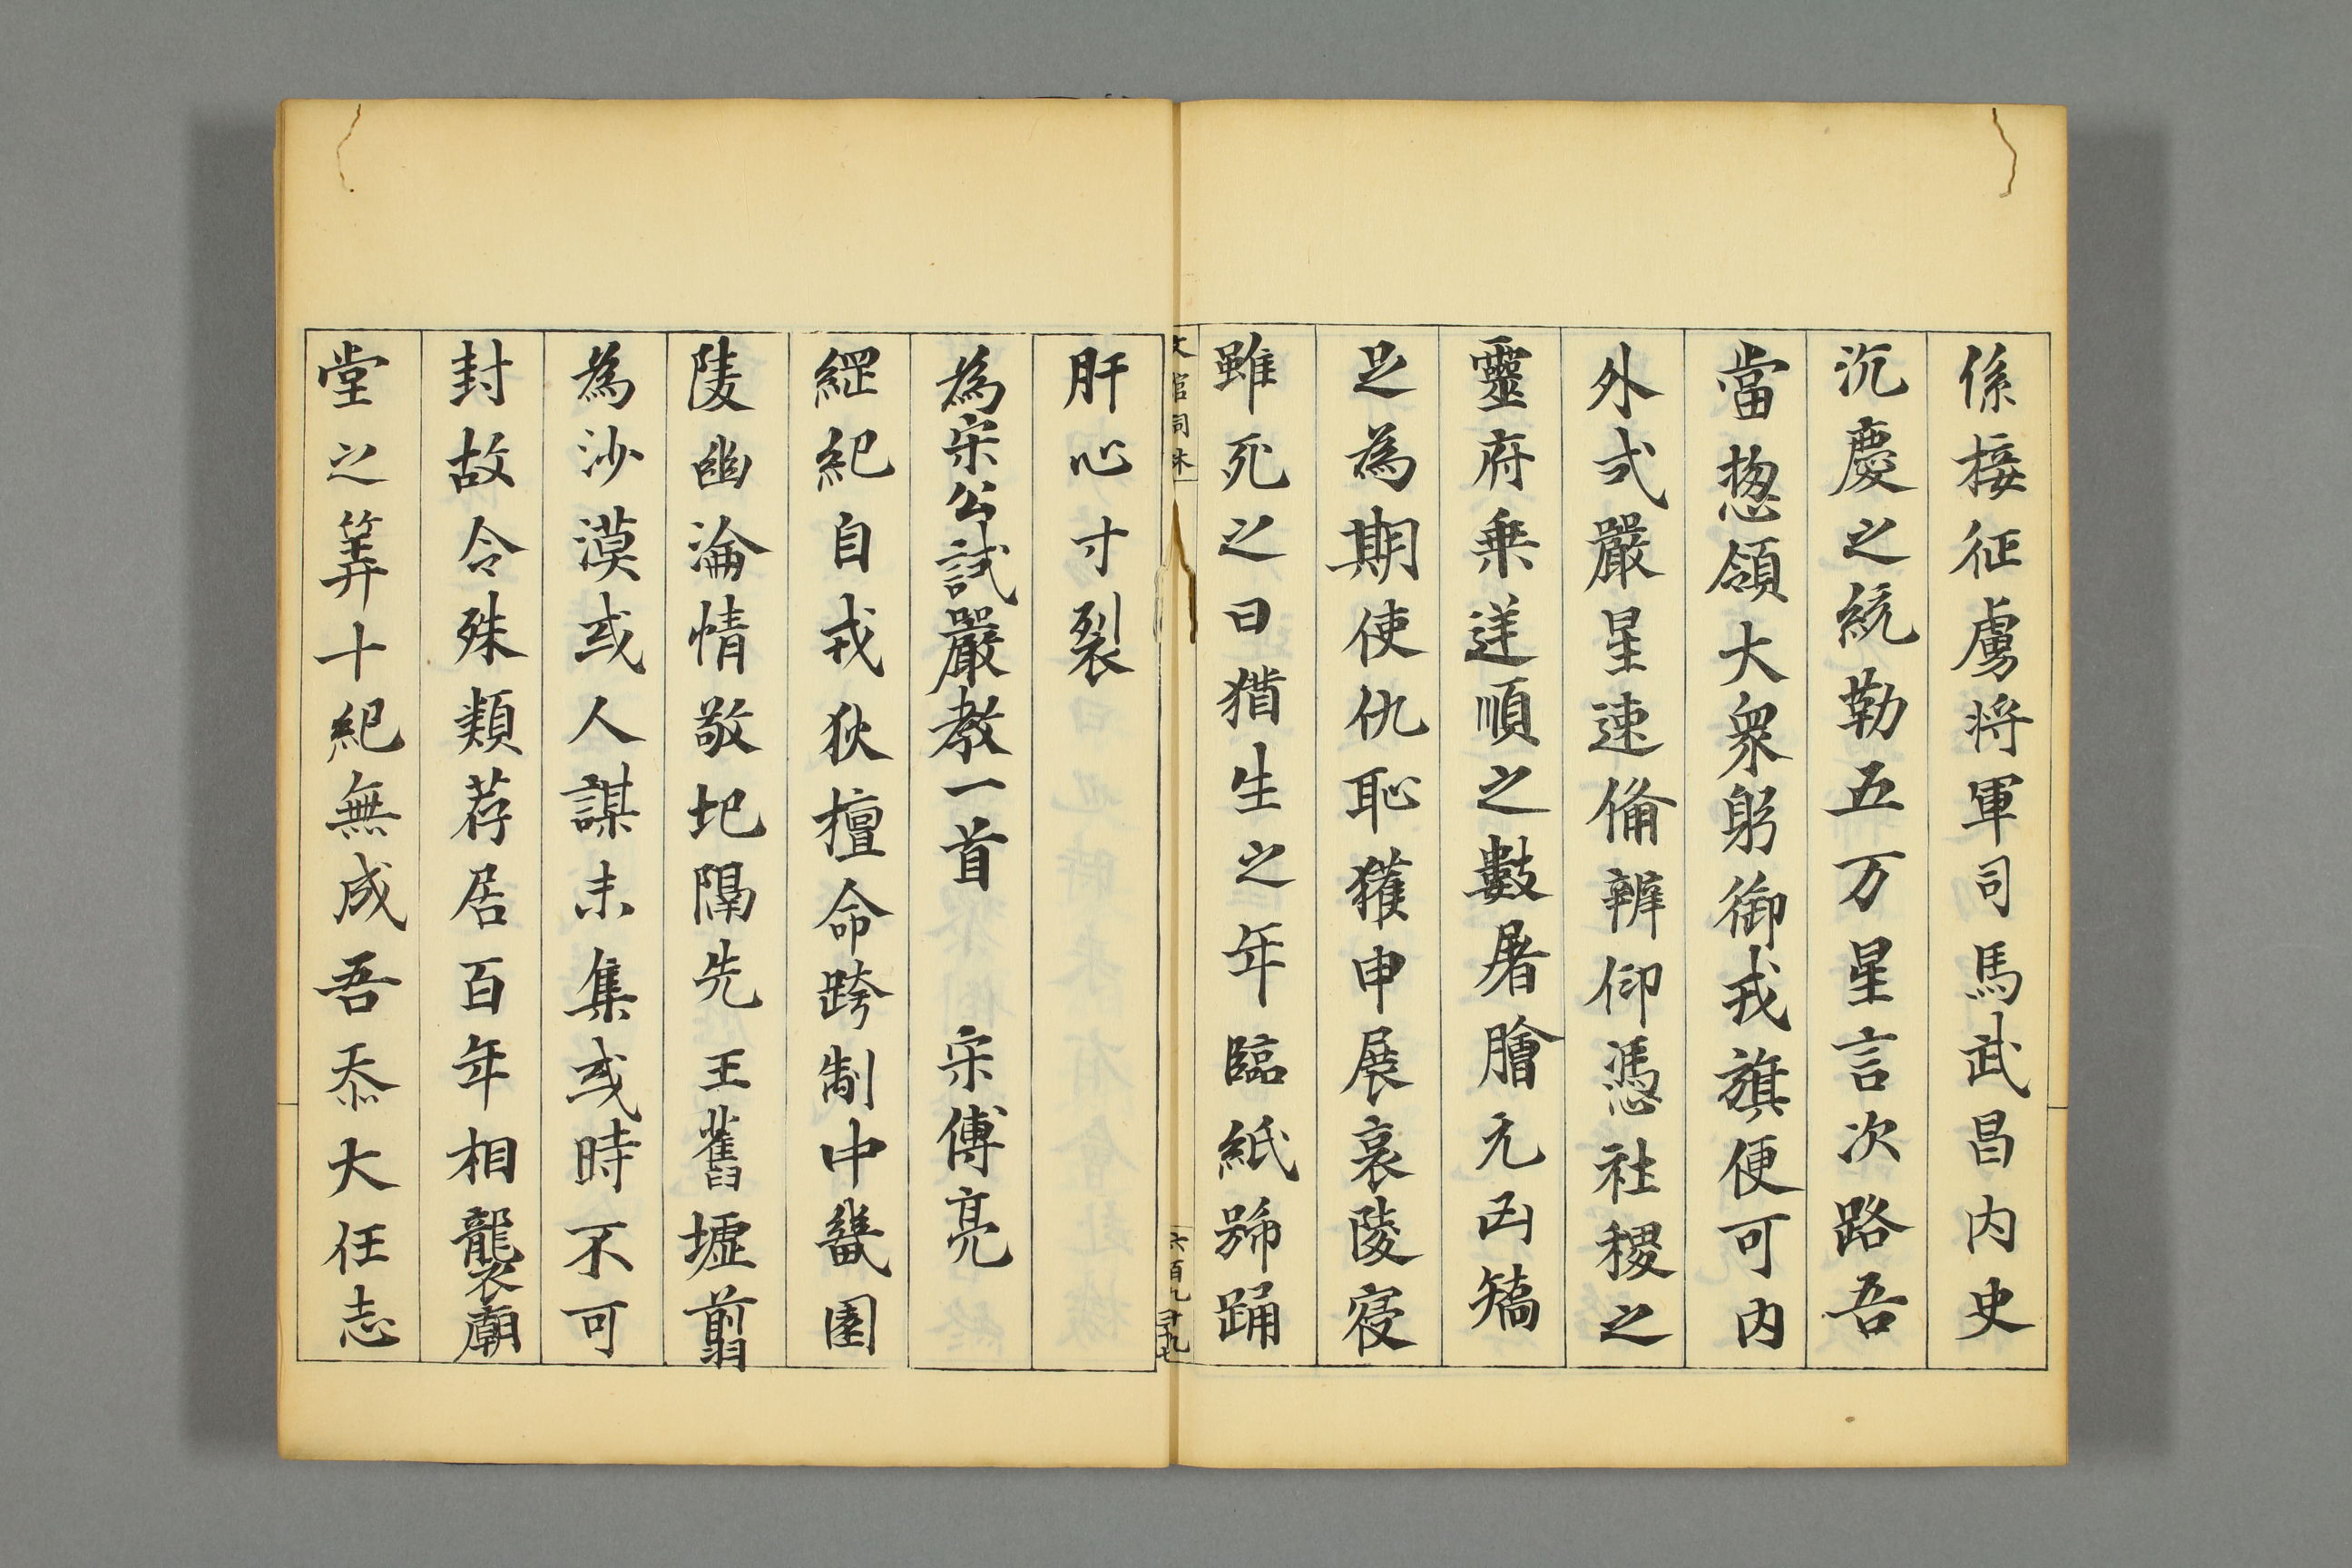 係接征虜将軍司馬武昌内史
沉慶之統勒五万星言次路吾
當揔領大衆躬御戎旗便可内
外式嚴星速俻辨仰憑社稷之
靈府乗送順之數屠膾元凶矯
足為期使仇恥獲申展哀陵寝
雖死之日猶生之年臨紙號踊
文官詞林
六百九十九
肝心寸裂
為宋公試嚴教一首 宋傅亮
綱紀自戎狄擅命跨制中畿園
陵幽淪情敬圯隔先 王舊墟翦
為沙漠或人謀未集或時不可
封故令殊類荐居百年相襲廟
堂之筭十紀無成吾忝大任志